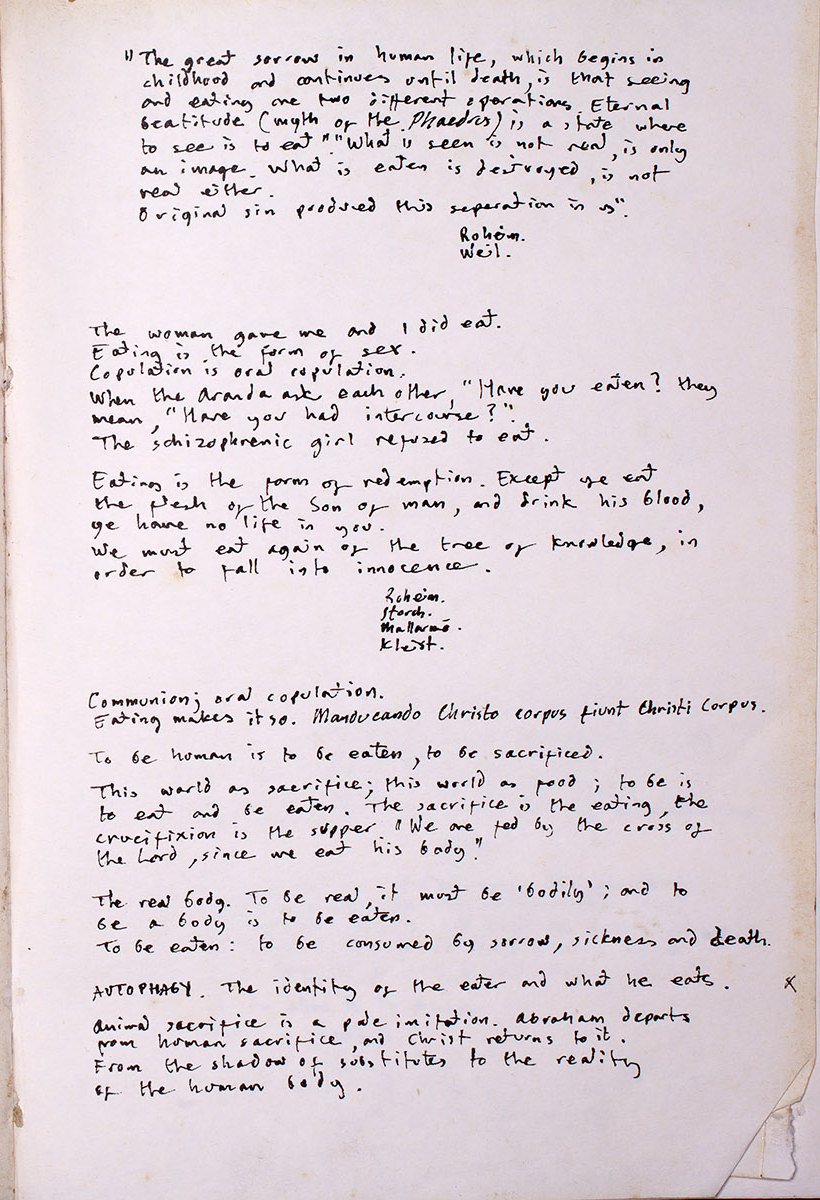 "The great sorrow in human life, which begins in
childhood and continues until death, is that seeing
and eating are two different operations. Eternal
beatitude (myth of the Phaedrus) is a state where
to see is to eat" "What is seen is not real, is only
an image. What is eaten is destroyed, is not
real either.
Original sin produced this seperation in us".
Roheim.
Weil.
The woman gave me and I did eat.
Eating is the form of sex.
Copulation is oral copulation.
When the Aranda ask each other, "Have you eaten? they
mean, "Have you had intercourse?".
The schizophrenic girl refused to eat.
Eating is the form of redemption. Except ye eat
the flesh of the Son of man, and drink his blood,
ye have no life in you.
We must eat again of the tree of knowledge, in
order to fall into innocence.
Roheim.
Storch.
Mallarmé.
Kleist.
Communion; oral copulation.
Eating makes it so. Manducando Christo corpus fiunt Christi Corpus.
To be human is to be eaten, to be sacrificed.
This world as sacrifice; this world as food; to be is
to eat and be eaten. The sacrifice is the eating, the
crucifixion is the supper. "We are fed by the cross of
the Lord, since we eat his body."
The real body. To be real, it must be 'bodily'; and to
be a body is to be eaten.
To be eaten: to be consumed by sorrow, sickness and death.
AUTOPHAGY. The identity of the eater and what he eats. x
Animal sacrifice is a pale imitation. Abraham departs
from human sacrifice, and Christ returns to it.
From the shadow of substitutes to the reality
of the human body.